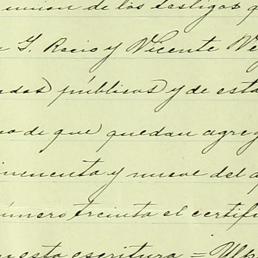 union de los testigos q
G. Recio y Vicente Ve
publicos y de esta
o de que quedan agreg
incuenta y nueve del a
número treinta el certifi
esta escritura =